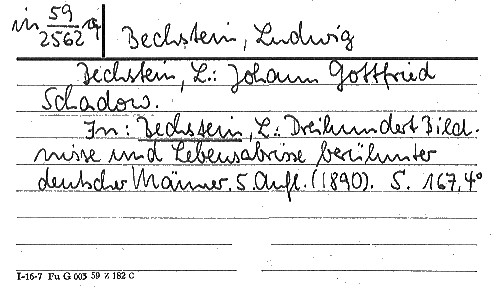 in 59/2562 q Bechstein, Ludwig
Bechstein, L.: Johann Gottfried
Schadow.
In: Bechstein, L.: Dreihundert Bild-
nisse und Lebensabrisse berühmter
deutscher Männer. 5. Aufl. (1890). S. 167, 4°
I-16-7 Fu G 003 59 Z 182 C